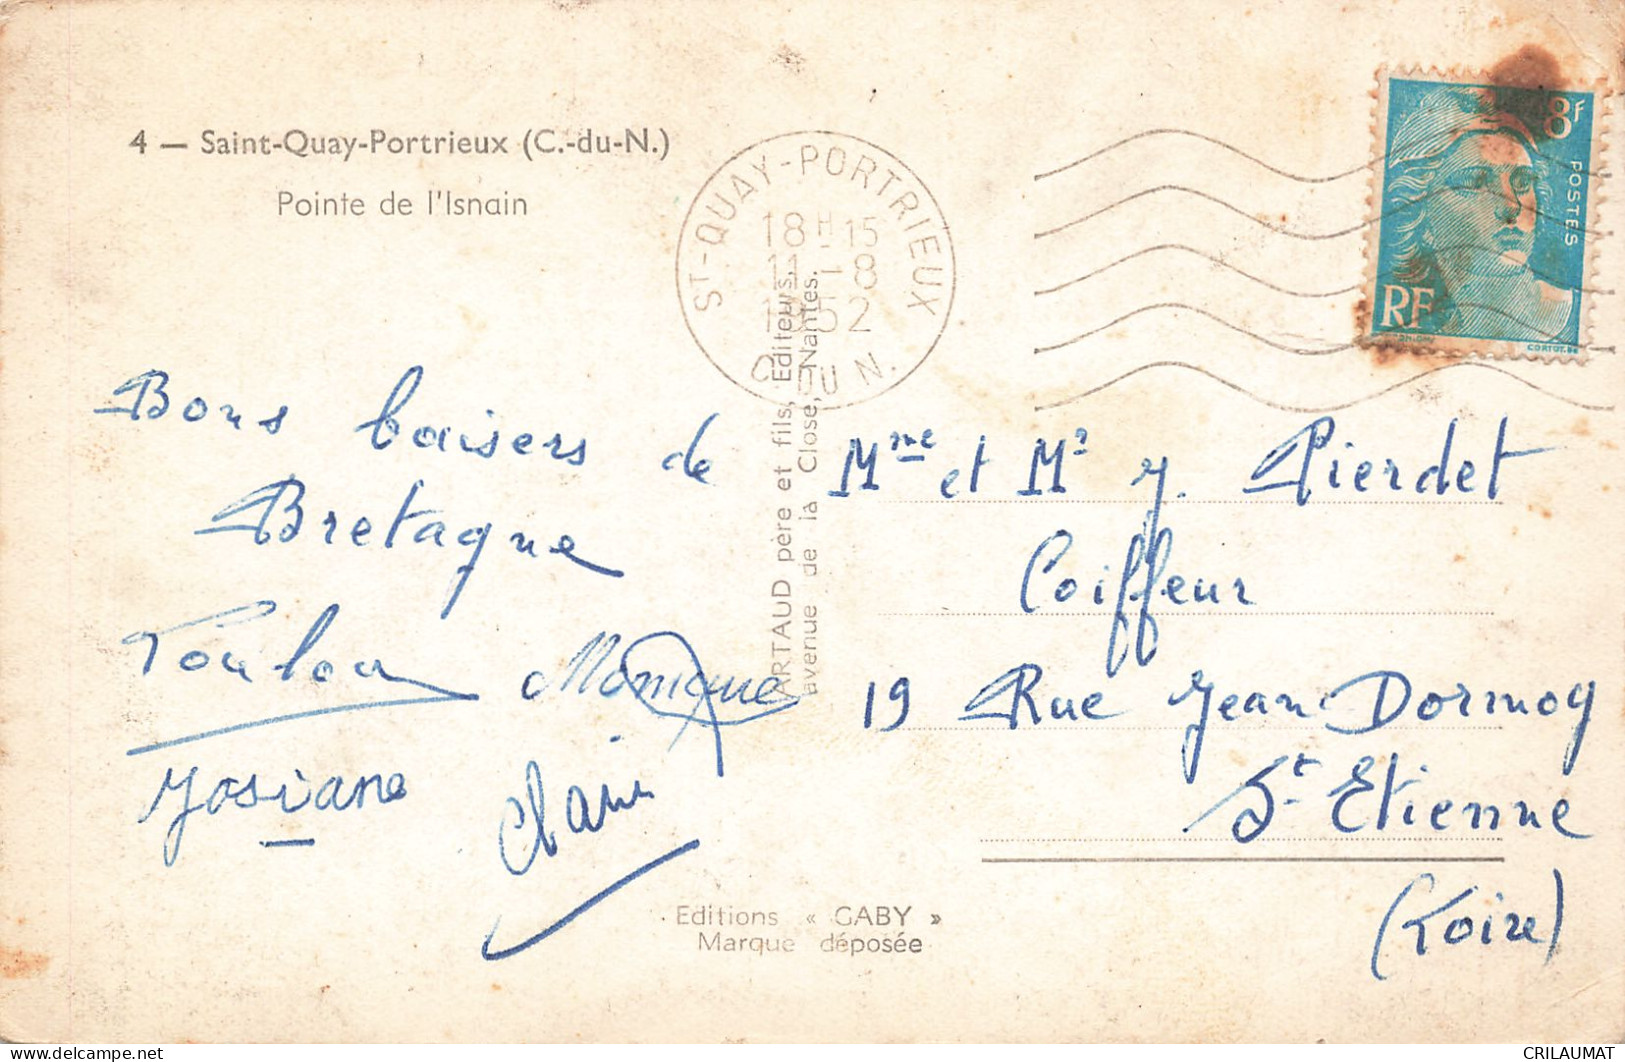 4 — Saint-Quay-Portrieux (C.-du-N.)
Pointe de l'Isnain
ST-QUAY-PORTRIEUX
18H15
11-8
1952
C. DU N.
8f
POSTES
RF
CORTOT.
ARTAUD père et fils, Editeurs.
avenue de la Close, Nantes.
Bons baisers de
Bretagne
Monique
Josiane
Mme et Mr J. Pierdet
Coiffeur
19 Rue Jean Dormoy
St Etienne
(Loire)
Editions « GABY »
Marque déposée
delcampe.net
CRILAUMAT